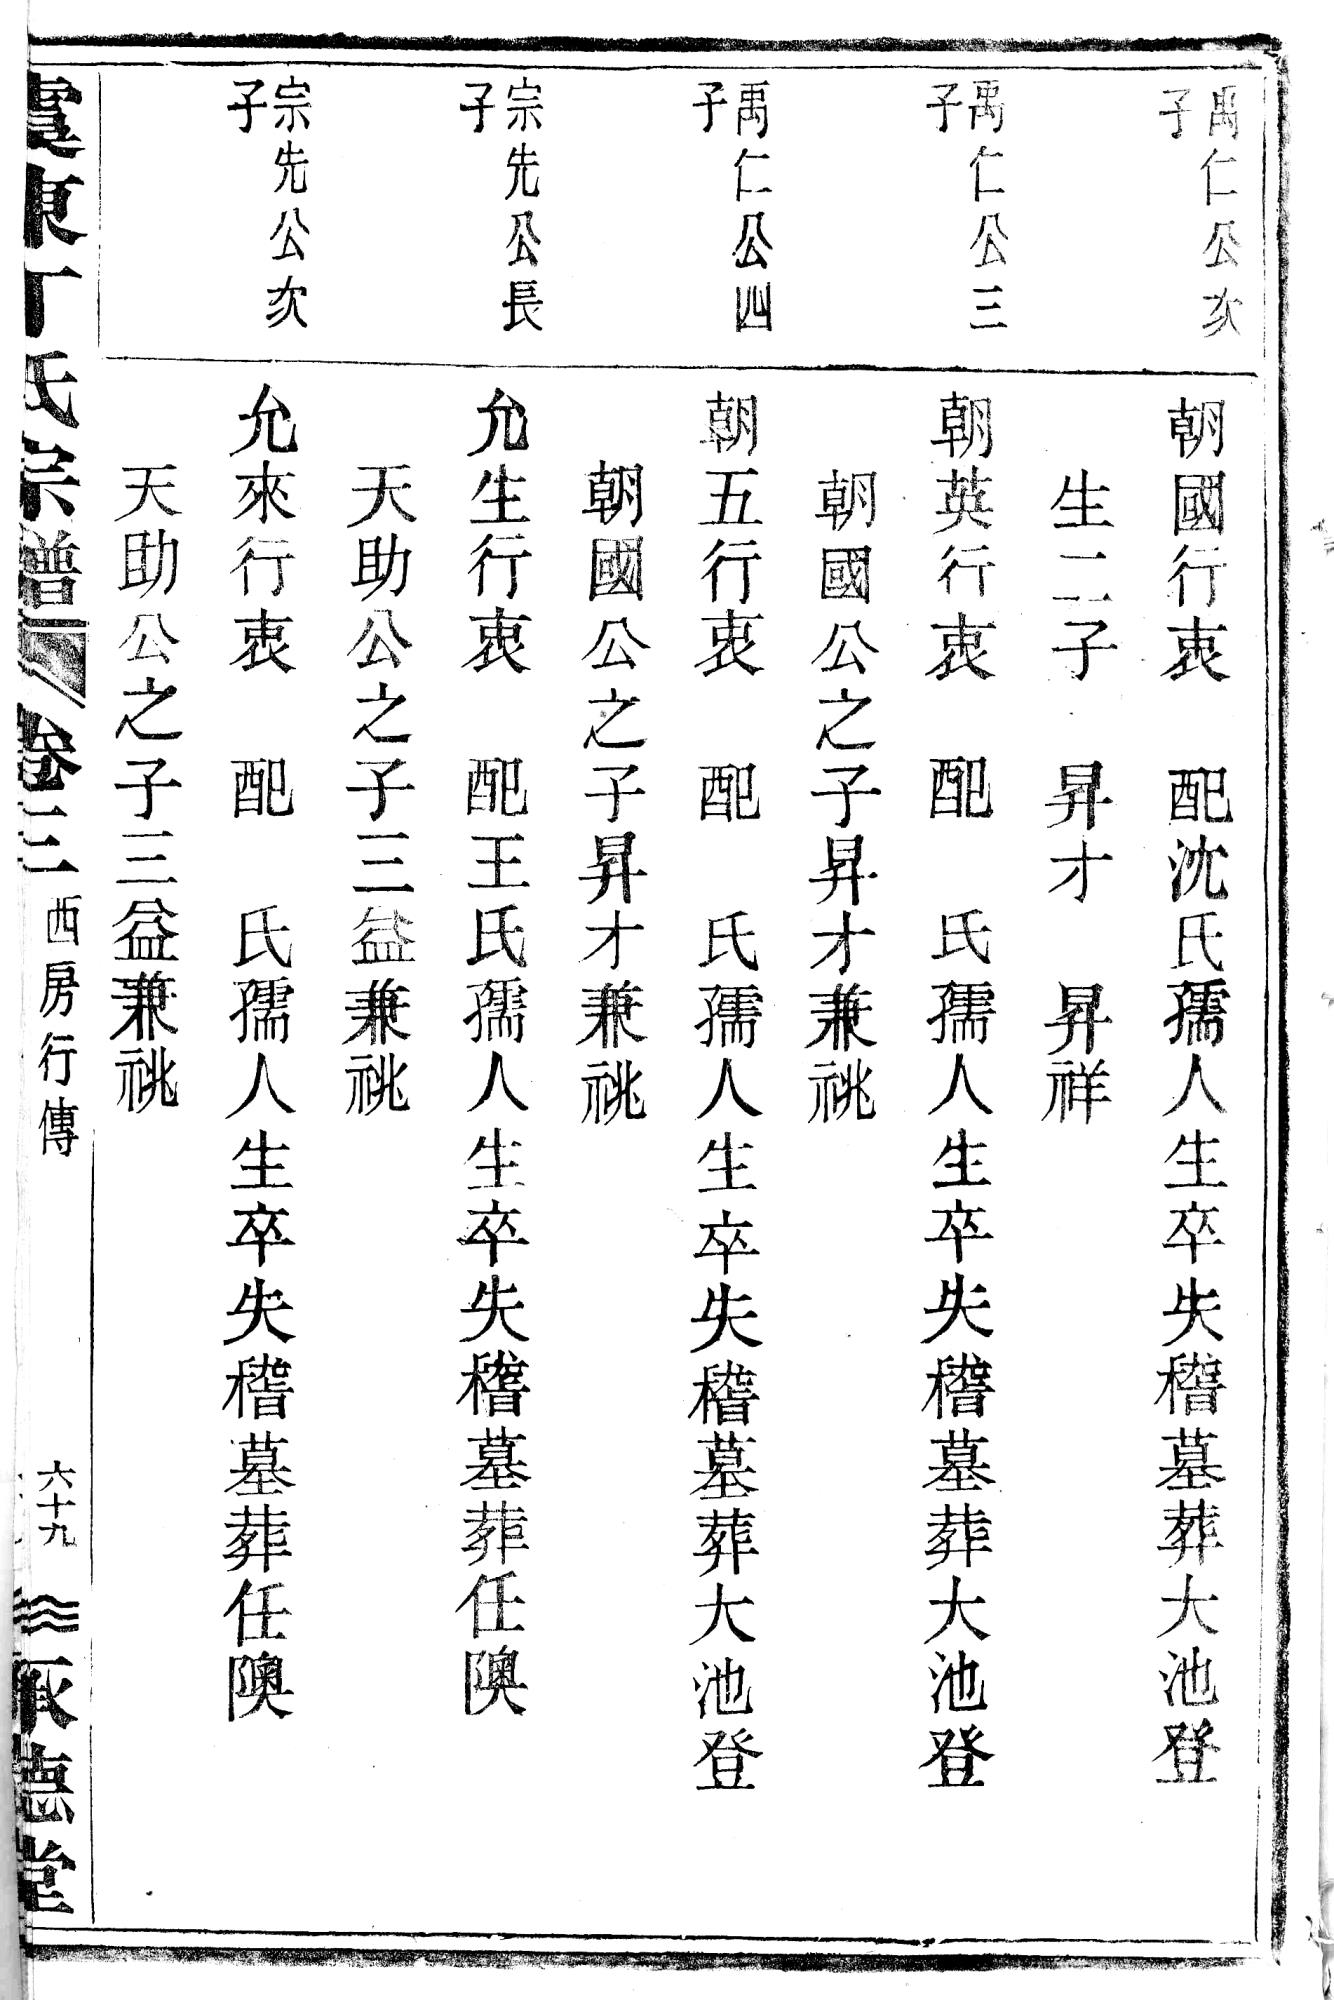 禹仁公次
子
朝國行衷　配沈氏孺人生卒失稽墓葬大池登
生二子　昇才　昇祥
禹仁公三
子
朝英行衷　配　氏孺人生卒失稽墓葬大池登
朝國公之子昇才兼祧
禹仁公四
子
朝五行衷　配　氏孺人生卒失稽墓葬大池登
朝國公之子昇才兼祧
宗先公長
子
允生行衷　配王氏孺人生卒失稽墓葬任隩
天助公之子三益兼祧
宗先公次
子
允來行衷　配　氏孺人生卒失稽墓葬任隩
天助公之子三益兼祧
虞東丁氏宗譜　卷三　西房行傳　六十九　承德堂